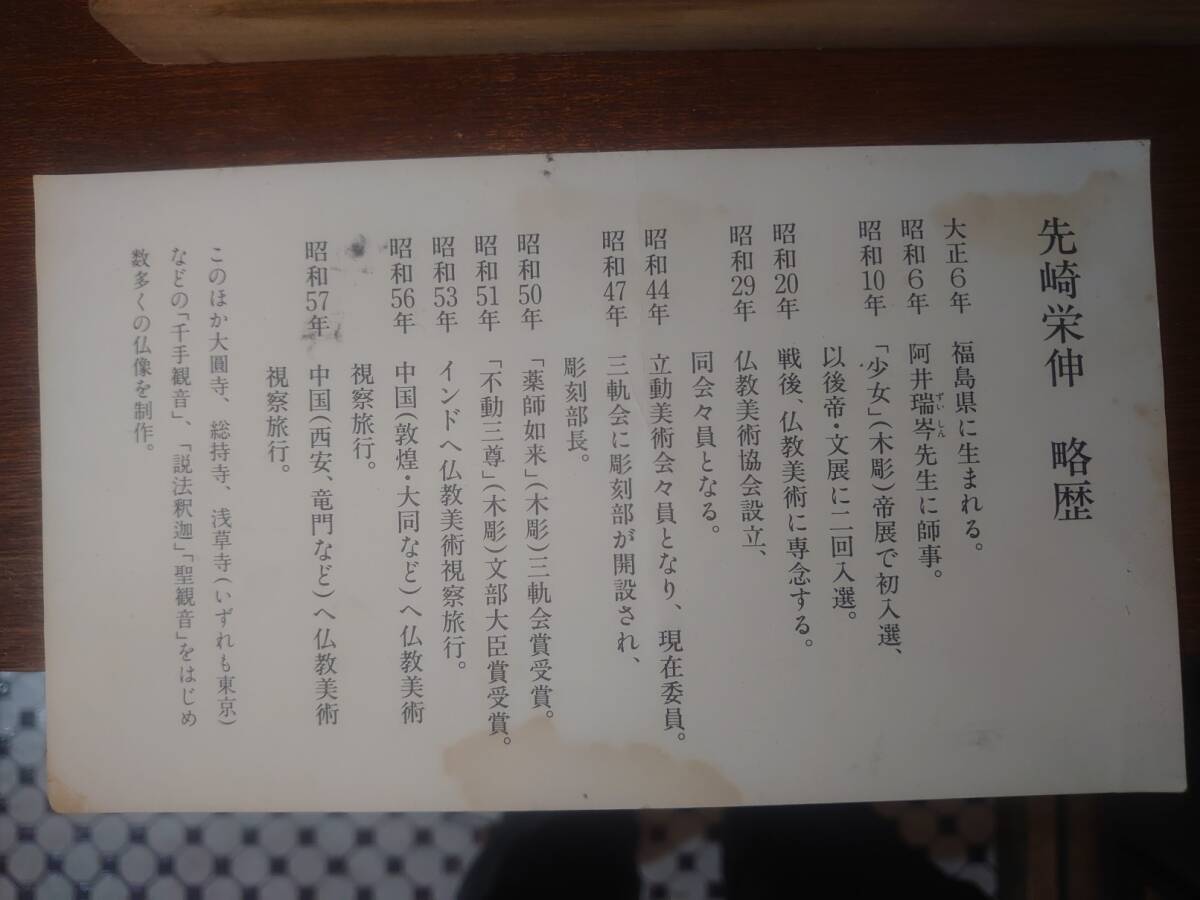 先崎栄伸　略歴
大正6年　福島県に生まれる。
昭和6年　阿井瑞岑先生に師事。
ずいしん
昭和10年　「少女」(木彫)帝展で初入選、
以後帝・文展に二回入選。
昭和20年　戦後、仏教美術に専念する。
昭和29年　仏教美術協会設立、
同会々員となる。
昭和44年　立動美術会々員となり、現在委員。
昭和47年　三軌会に彫刻部が開設され、
彫刻部長。
昭和50年　「薬師如来」(木彫)三軌会賞受賞。
昭和51年　「不動三尊」(木彫)文部大臣賞受賞。
昭和53年　インドへ仏教美術視察旅行。
昭和56年　中国(敦煌・大同など)へ仏教美術
視察旅行。
昭和57年　中国(西安、竜門など)へ仏教美術
視察旅行。
このほか大圓寺、総持寺、浅草寺(いずれも東京)
などの「千手観音」、「説法釈迦」「聖観音」をはじめ
数多くの仏像を制作。